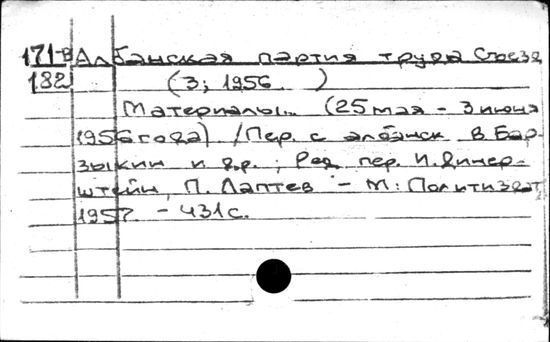 171-В Албанская партия труда Съезд
182 (3; 1956 )
Материалы... (25 мая - 3 июня
1956 года) /Пер. с албанск В Бар-
зыкин и др.; Ред. пер. И. Винер-
штейн, П. Лаптев - М: Политиздат
1957 - 431 с.